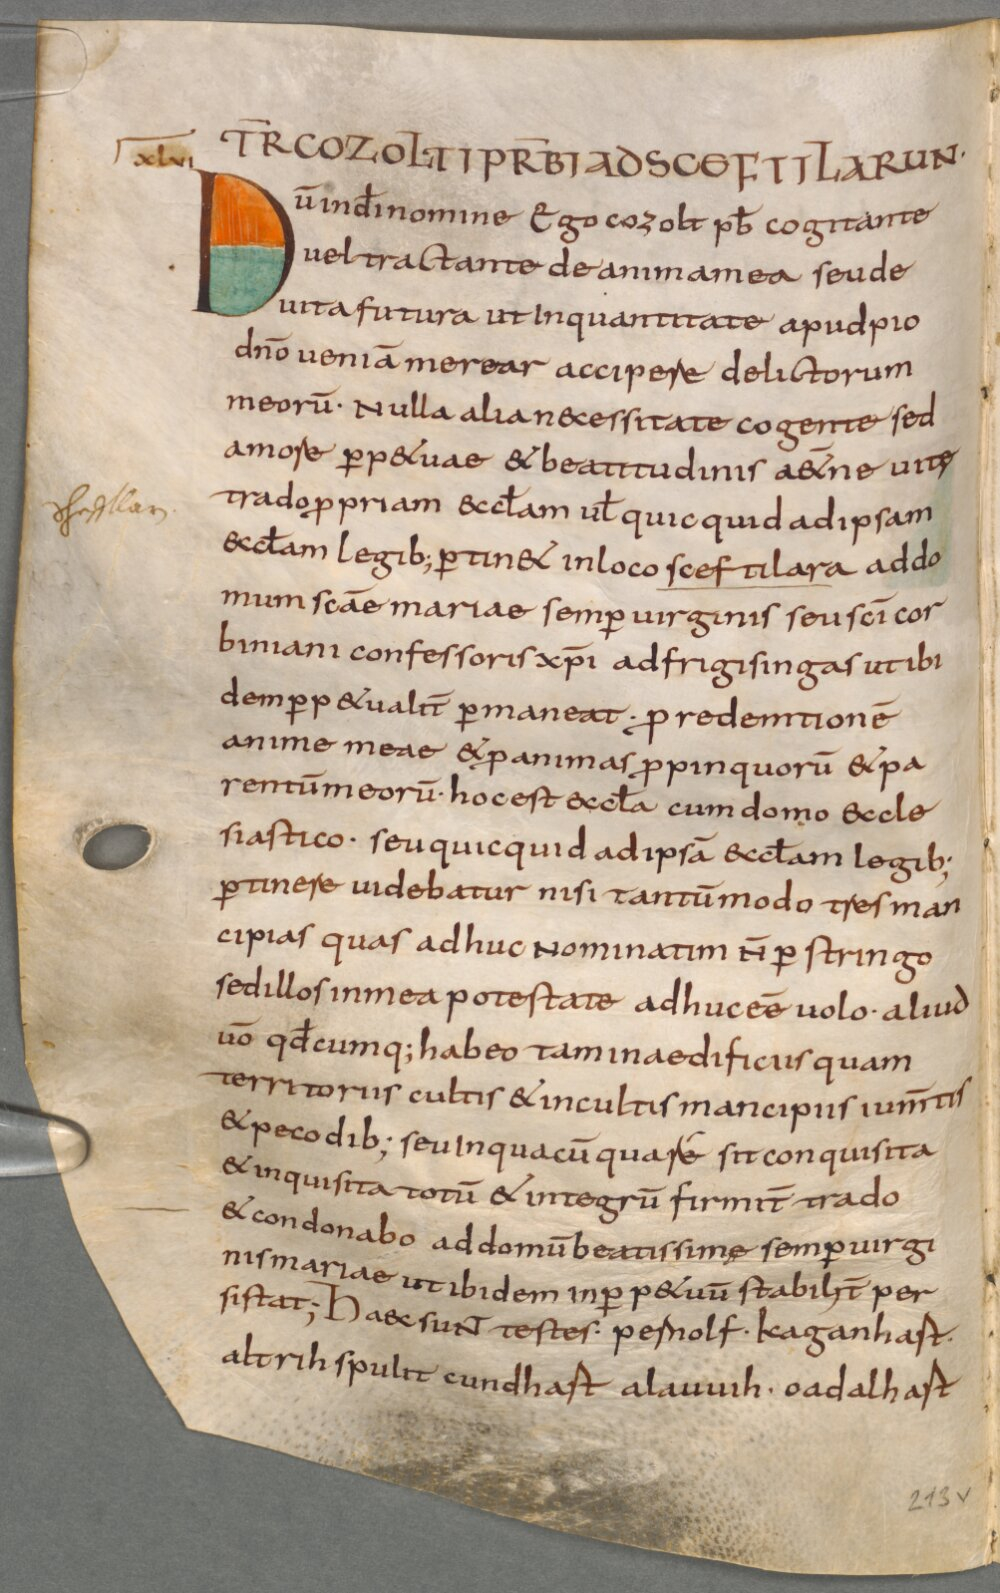 xlvi
TR̄ COZOLTI PR̄BI AD SCEFTILARUN·
Dū in dī nomine Ego cozolt pb̄ cogitante
uel tractante de anima mea seu de
uita futura ut Inquantitate apud pio
dn̄o ueniā merear accipere delictorum
meorū· Nulla alia necessitate cogente sed
amore ꝑp&uae & beatitudinis aet̄ne uitę
trado ꝓpriam eccl̄am ul̄ quicquid ad ipsam
eccl̄am legib; ꝑtin& in loco sceftilara ad do
mum scāe mariae semꝑ uirginis seu scī cor
biniani confessoris xp̄i ad frigisingas ut ibi
dem ꝑp&ualit̄ ꝑmaneat· ꝓ redemtionē
anime meae & ꝓ animas ꝓpinquorū & pa
rentūmeorū· hoc est eccl̄a cum domo eccle
siastico· seu quicquid ad ipsā eccl̄am legib;
ꝑtinere uidebatur nisi tantūmodo tres man
cipias quas adhuc Nominatim N̄ ꝑstringo
sed illos in mea potestate adhuc eē uolo· aliud
uō qd̄cumq; habeo tam in aedificiis quam
territoriis cultis & incultis mancipiis ium̄tis
& pecodib; seu Inquacū qua re sit conquisita
& inquisita totū & integrū firmit̄ trado
& condonabo ad domū beatissimę semꝑ uirgi
nis mariae ut ibidem in ꝑp&uū stabilit̄ per
sistat; Haec suNT testes· pernolf· kaganhart·
altrih spulit cundhart alauuih· oadalhart
scheftlarn
213 v